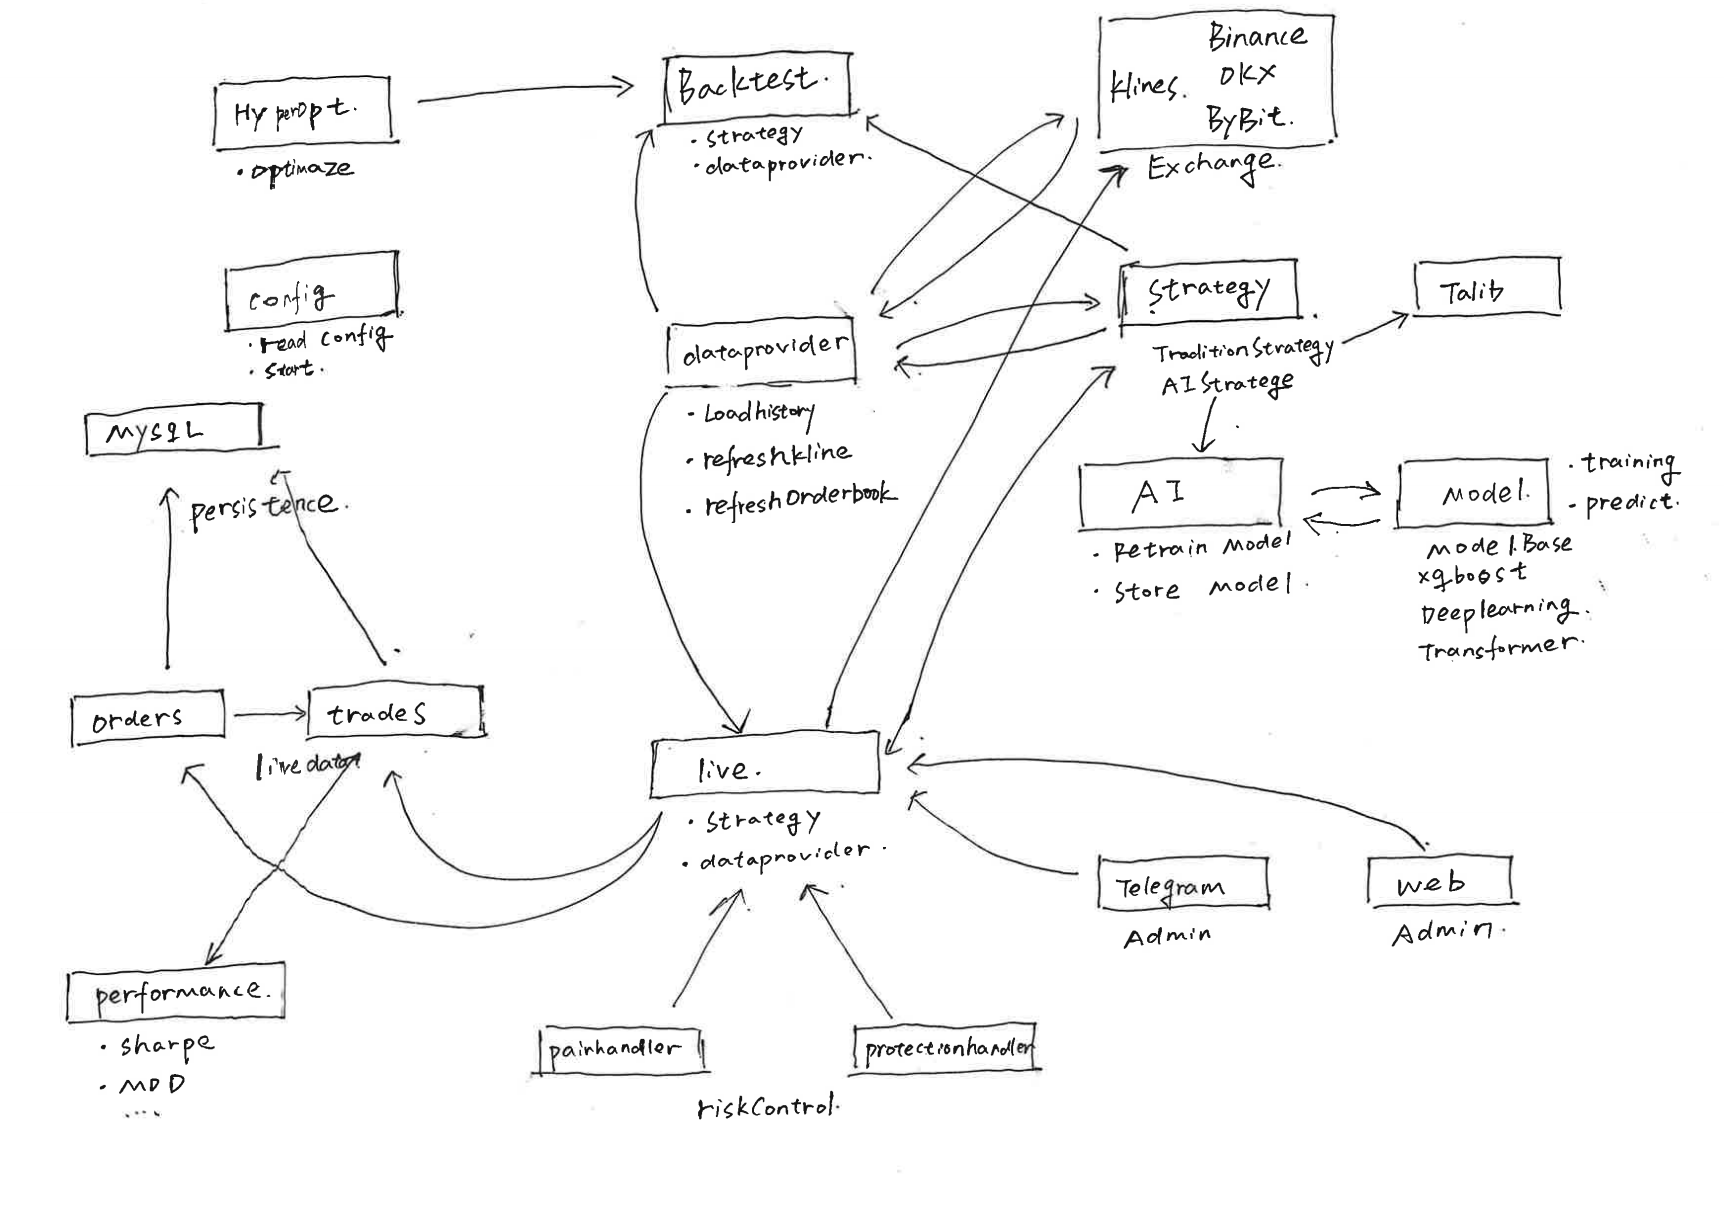 HyperOpt.
• optimaze
Backtest.
• strategy
• dataprovider.
klines.
Binance
OKX
ByBit.
Exchange.
config
• read config
• start.
dataprovider
• Loadhistory
• refreshkline
• refreshOrderbook
strategy
TraditionStrategy
AIStratege
Talib
MysQL
persistence.
AI
• Retrain Model
• store model.
Model.
• training
• predict.
model.Base
xgboost
Deeplearning.
Transformer.
orders
trades
livedata
live.
• strategy
• dataprovider.
Telegram
Admin
web
Admin.
performance.
• sharpe
• MDD
....
painhandler
protectionhandler
riskControl.